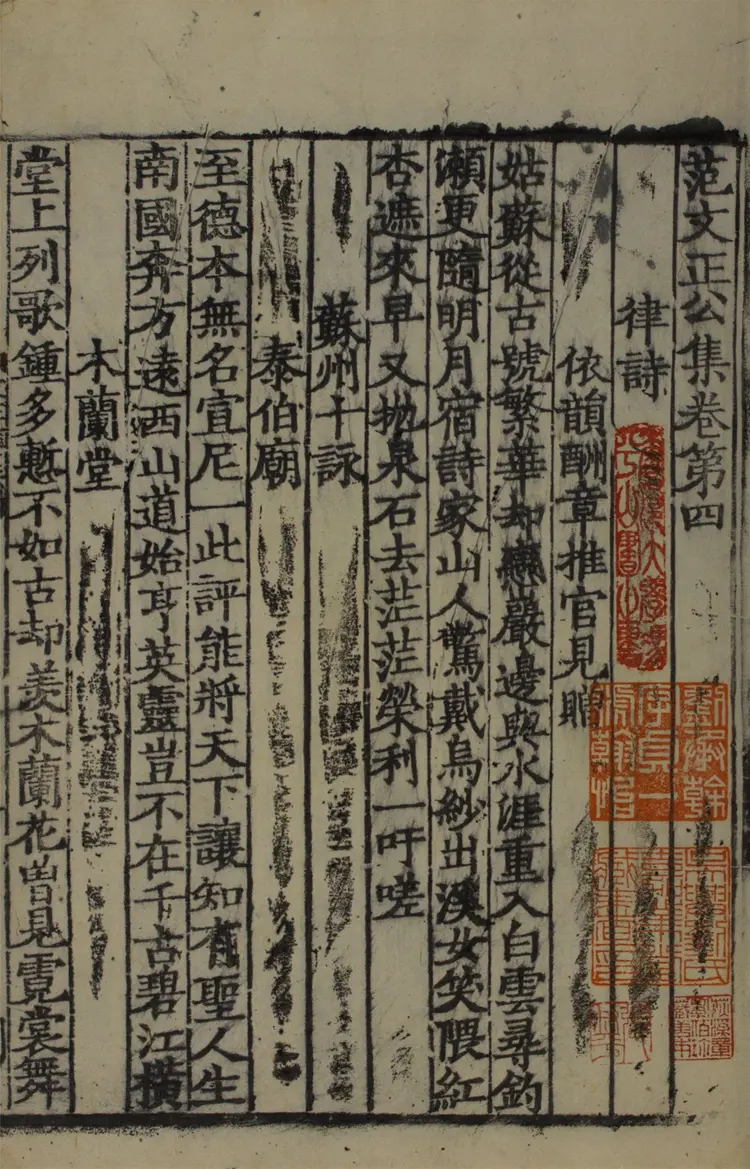 范文正公集卷第四
律詩
依韻酬章推官見贈
姑蘇從古號繁華却戀巖邊與水涯重入白雲尋釣
瀨更隨明月宿詩家山人驚戴烏紗出溪女笑隈紅
杏遮來早又抛泉石去茫茫榮利一吁嗟
蘇州十詠
泰伯廟
至德本無名宣尼一此評能將天下讓知有聖人生
南國奔方遠西山道始亨英靈豈不在千古碧江橫
木蘭堂
堂上列歌鍾多慙不如古却羨木蘭花曽見霓裳舞